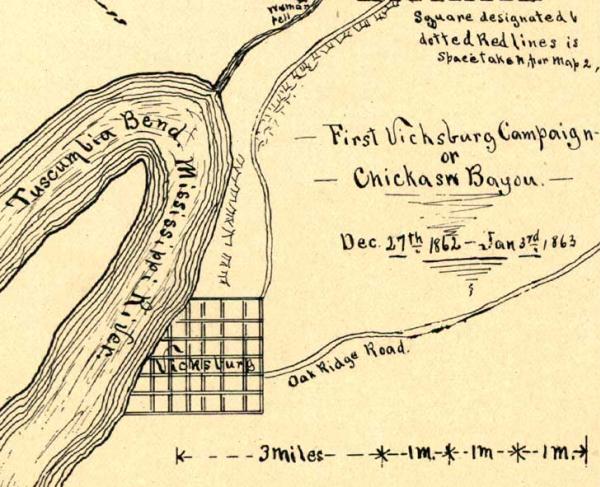 Square designated b
dotted Red lines is
space taken for Map 2,
First Vicksburg Campaign-
or
Chickasw Bayou.
Dec. 27th 1862 - Jan 3rd, 1863
Tuscumbia Bend.
Mississippi River.
Vicksburg
Oak Ridge Road.
3 miles 1m. 1m 1m.